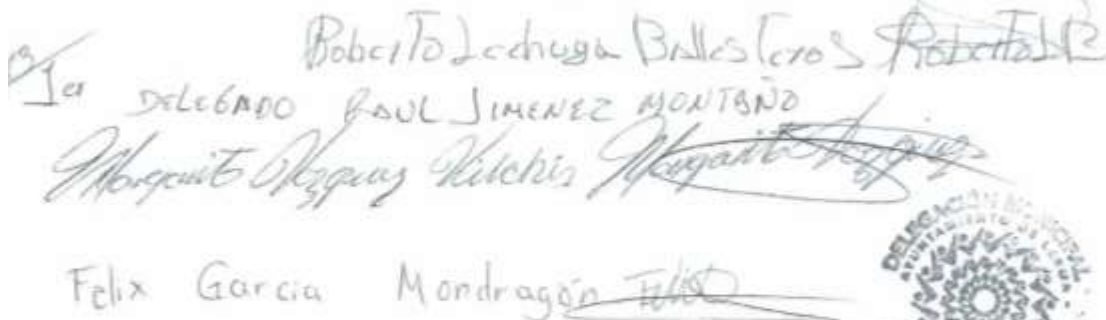 Roberto Lechuga Ballesteros Roberto LB
1er DELEGADO RAUL JIMENEZ MONTAÑO
Margarito Vazquez Vilchis Margarito Vazquez
Felix Garcia Mondragón Felix
DELEGACIÓN MUNICIPAL
AYUNTAMIENTO DE LERMA